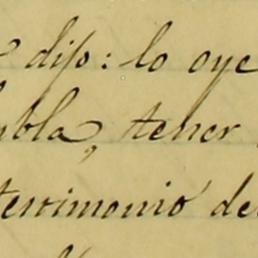 dijo: lo oye
tener
testimonio de